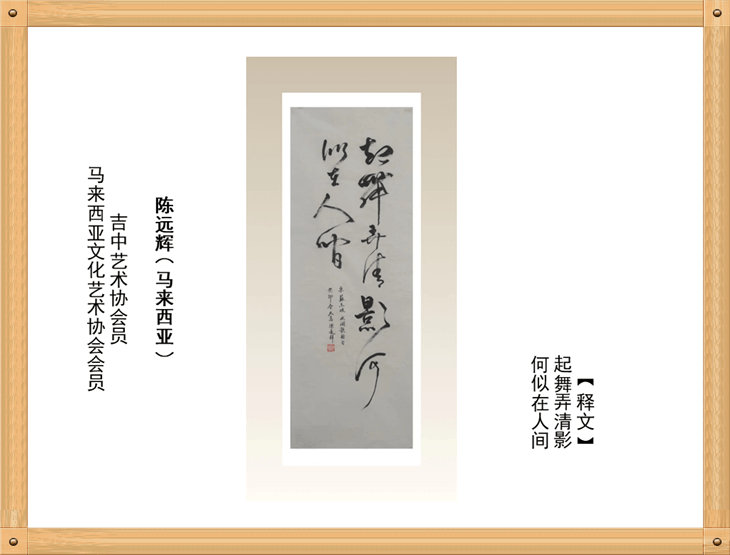 【释文】
起舞弄清影
何似在人间
起舞弄清影何
似在人間
陈远辉（马来西亚）
吉中艺术协会员
马来西亚文化艺术协会会员